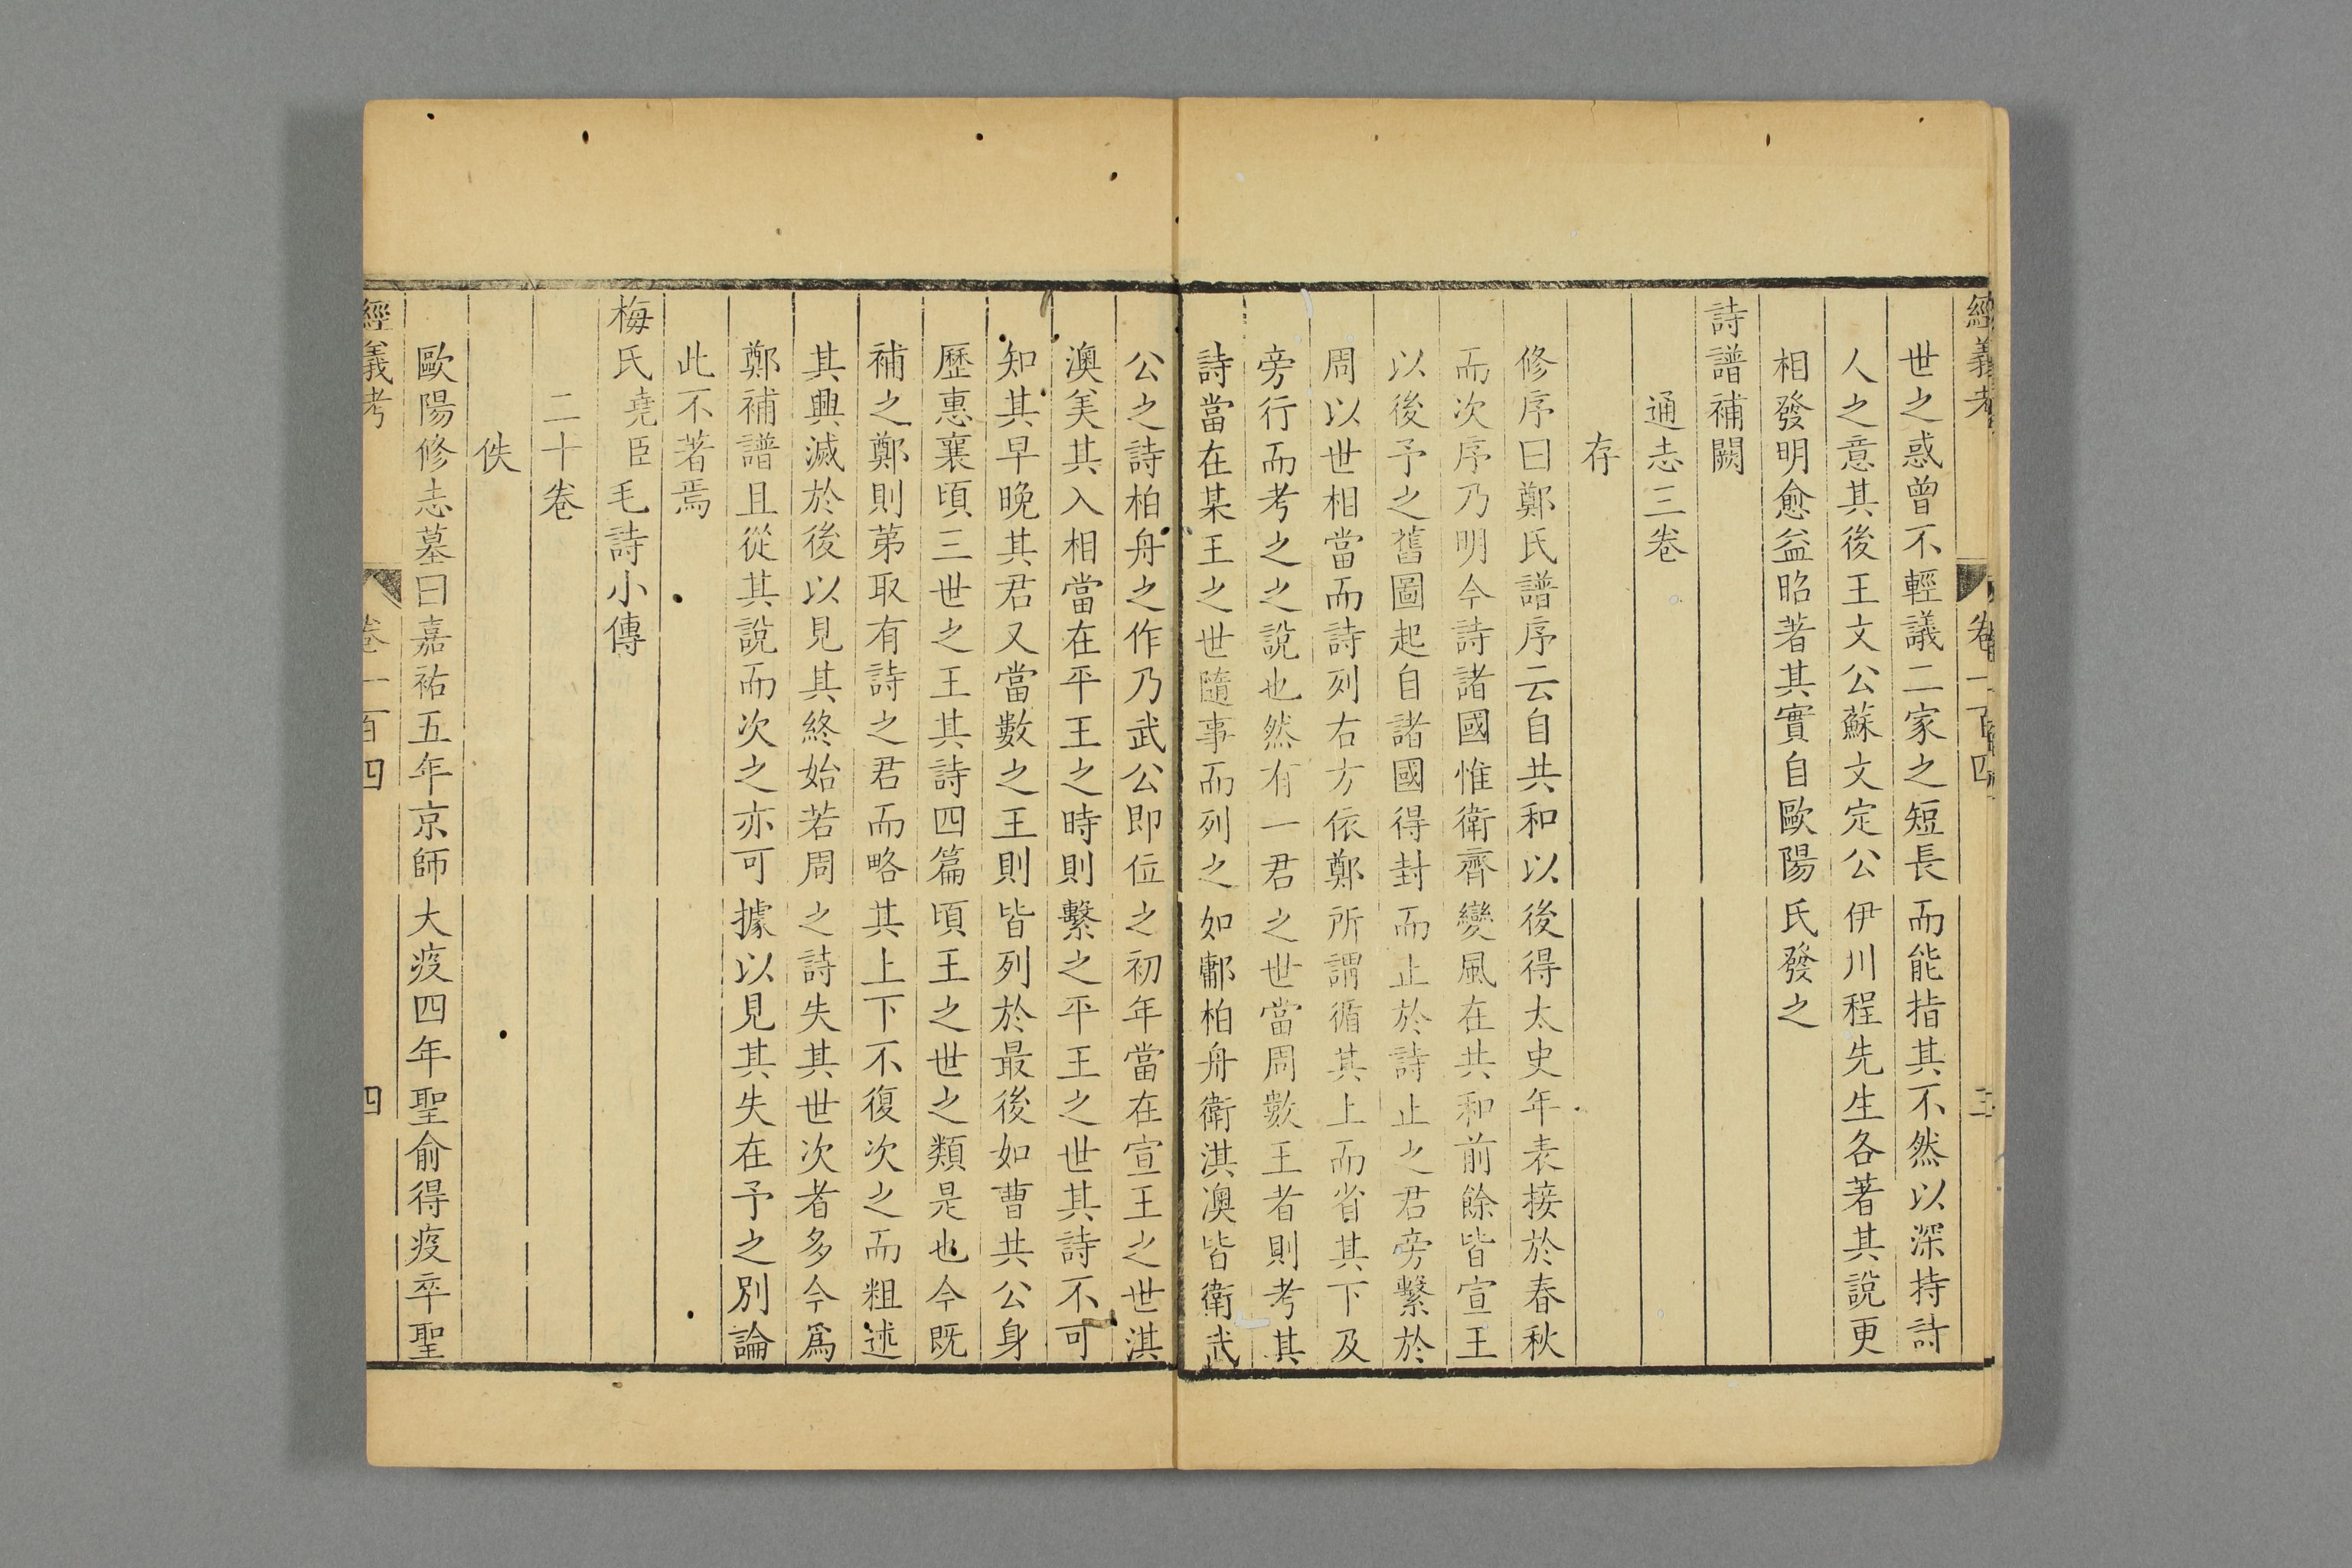 經義考 卷一百四 三
世之惑曾不輕議二家之短長而能指其不然以深持詩
人之意其後王文公蘇文定公伊川程先生各著其說更
相發明愈益昭著其實自歐陽氏發之
詩譜補闕
通志三卷
存
修序曰鄭氏譜序云自共和以後得太史年表接於春秋
而次序乃明今詩諸國惟衛齊變風在共和前餘皆宣王
以後予之舊圖起自諸國得封而止於詩止之君旁繫於
周以世相當而詩列右方依鄭所謂循其上而省其下及
旁行而考之之說也然有一君之世當周數王者則考其
詩當在某王之世隨事而列之如鄘柏舟衛淇澳皆衛武
公之詩柏舟之作乃武公即位之初年當在宣王之世淇
澳美其入相當在平王之時則繫之平王之世其詩不可
知其早晚其君又當數之王則皆列於最後如曹共公身
歷惠襄頃三世之王其詩四篇頃王之世之類是也今既
補之鄭則第取有詩之君而略其上下不復次之而粗述
其興滅於後以見其終始若周之詩失其世次者多今爲
鄭補譜且從其說而次之亦可據以見其失在予之別論
此不著焉
梅氏堯臣毛詩小傳
二十卷
佚
歐陽修志墓曰嘉祐五年京師大疫四年聖俞得疫卒聖
經義考 卷一百四 四